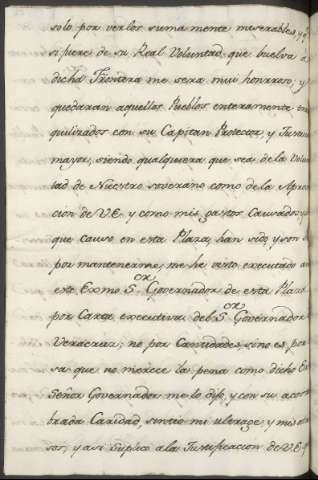 solo por verlos suma mente miserables, y q.e
si fuere de su Real Voluntad, que buelva a
dicha Frontera me sera muy honrroso; y
quedaran aquellos Pueblos enteramente
quilizados con su Capitan Protector, y Justicia
mayor, siendo qualquiera que sea de la Volun
tad de Nuestro soverano como de la Aprova
cion de V.E. y como mis gastos Causados, y
que causo en esta Plaza, han sido, y son
por mantenerme, me he visto executado
este Exmo S.or Governador de esta Plaza
por Carta executiva del S.or Governador
Veracruz; no por Cantidades, sino es por
sa que no merece la pena como dicho Ex
Señor Governador me lo dijo, y con su acos
brada Caridad, sintio mi ultrage, y mis
sos, y asi suplico a la Justificacion de V.E.